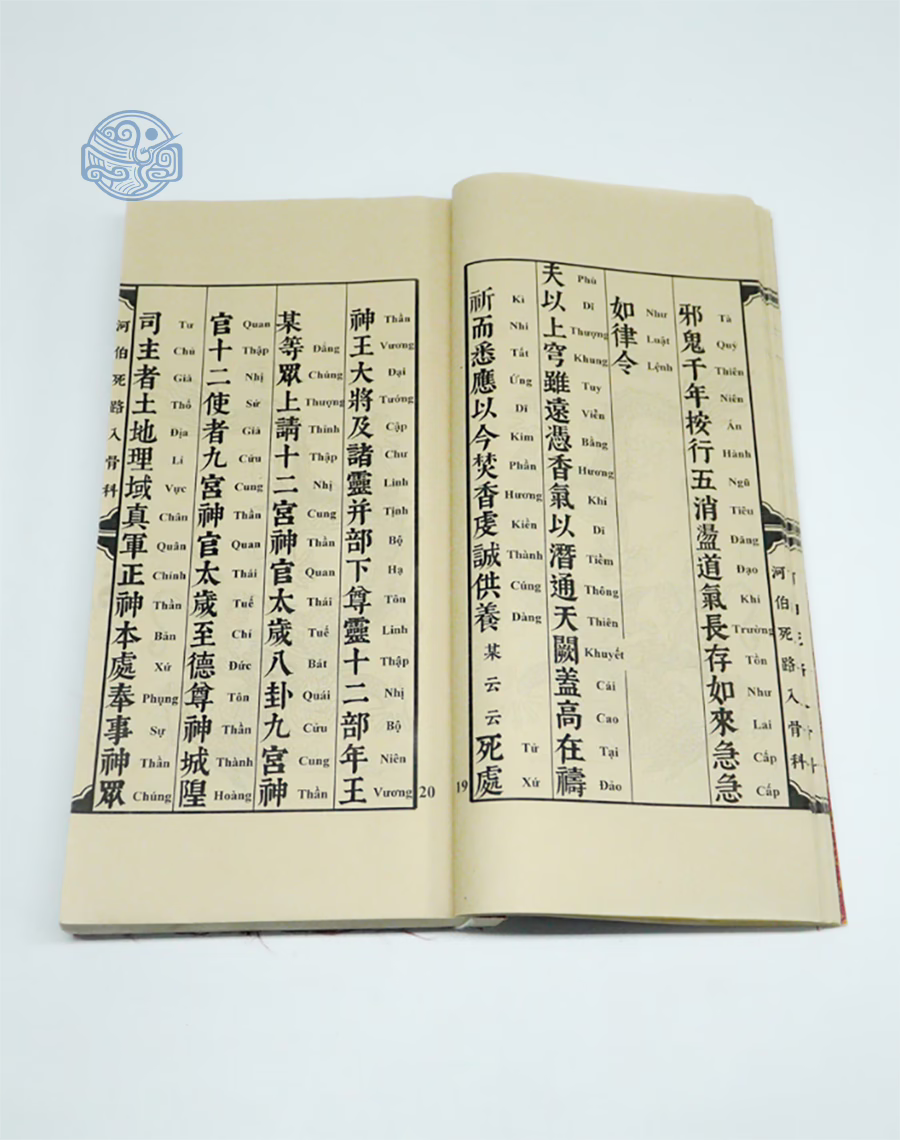 河伯死路入骨科
邪鬼千年按行五消盪道氣長存如來急急
Tà Quỷ Thiên Niên Án Hành Ngũ Tiêu Đãng Đạo Khí Trường Tồn Như Lai Cấp Cấp
如律令
Như Luật Lệnh
夫以上穹雖遠憑香氣以潛通天闕蓋高在禱
Phù Dĩ Thượng Khung Tuy Viễn Bằng Hương Khí Dĩ Tiềm Thông Thiên Khuyết Cái Cao Tại Đảo
祈而悉應以今焚香虔誠供養某云云死處
Kì Nhi Tất Ứng Dĩ Kim Phần Hương Kiền Thành Cúng Dàng Tử Xứ
19
20
神王大將及諸靈并部下尊靈十二部年王
Thần Vương Đại Tướng Cập Chư Linh Tịnh Bộ Hạ Tôn Linh Thập Nhị Bộ Niên Vương
某等眾上請十二宮神官太歲八卦九宮神
Đẳng Chúng Thượng Thỉnh Thập Nhị Cung Thần Quan Thái Tuế Bát Quái Cửu Cung Thần
官十二使者九宮神官太歲至德尊神城隍
Quan Thập Nhị Sứ Giả Cửu Cung Thần Quan Thái Tuế Chí Đức Tôn Thần Thành Hoàng
司主者土地理域真軍正神本處奉事神眾
Tư Chủ Giả Thổ Địa Lí Vực Chân Quân Chính Thần Bản Xứ Phụng Sự Thần Chúng
河伯死路入骨科